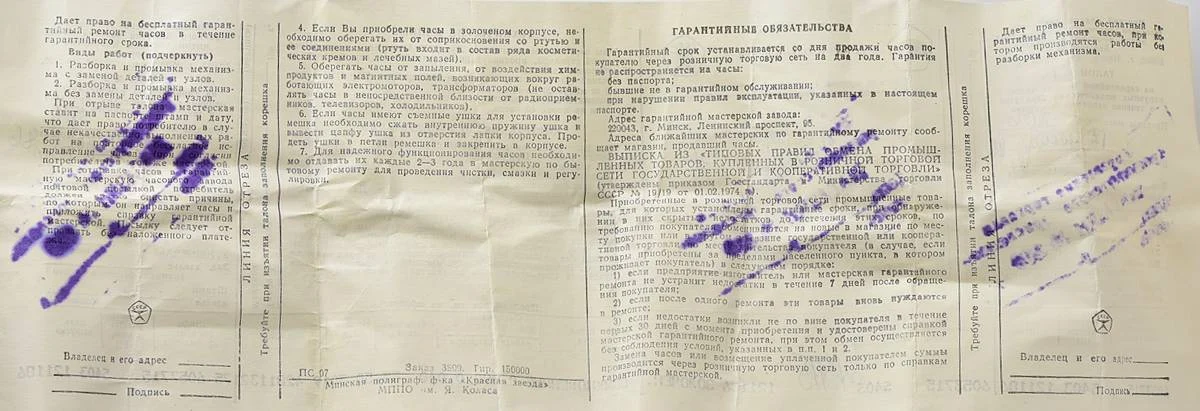 Дает право на бесплатный гаран-
тийный ремонт часов в течение
гарантийного срока.
Виды работ (подчеркнуть)
1. Разборка и промывка механиз-
ма с заменой деталей и узлов.
2. Разборка и промывка механиз-
ма без замены деталей и узлов.
При отрыве талона мастерская
ставит на паспорте штамп и дату,
что дает право потребителю в слу-
чае некачественно выполненных ра-
бот на
потреби
При
мастерскую часового завода
почтовой посылкой отправитель
должен причины,
по которым он направляет часы и
приложить справку гарантийной
мастерской. Посылку следует от-
правлять без наложенного плате-
жа.
Владелец и его адрес
Подпись
ЛИНИЯ ОТРЕЗА
Требуйте при изъятии талона заполнения корешка
4. Если Вы приобрели часы в золоченом корпусе, не-
обходимо оберегать их от соприкосновения со ртутью и
ее соединениями (ртуть входит в состав ряда космети-
ческих кремов и лечебных мазей).
5. Оберегать часы от запыления, от воздействия хим-
продуктов и магнитных полей, возникающих вокруг ра-
ботающих электромоторов, трансформаторов (не остав-
лять часы в непосредственной близости от радиоприем-
ников, телевизоров, холодильников).
6. Если часы имеют съемные ушки для установки ре-
мешка необходимо сжать внутреннюю пружину ушка и
вывести цапфу ушка из отверстия лапки корпуса. Про-
деть ушки в петли ремешка и закрепить в корпусе.
7. Для надежного функционирования часов необходи-
мо отдавать их каждые 2—3 года в мастерскую по бы-
товому ремонту для проведения чистки, смазки и регу-
лировки.
ПС-07
Заказ 3509. Тир. 150000
Минская полиграф. ф-ка «Красная звезда»
МППО им. Я. Коласа
ГАРАНТИЙНЫЕ ОБЯЗАТЕЛЬСТВА
Гарантийный срок устанавливается со дня продажи часов по-
купателю через розничную торговую сеть на два года. Гарантия
не распространяется на часы:
без паспорта;
бывшие не в гарантийном обслуживании;
при нарушении правил эксплуатации, указанных в настоящем
паспорте.
Адрес гарантийной мастерской завода:
220043, г. Минск, Ленинский проспект, 95.
Адреса ближайших мастерских по гарантийному ремонту сооб-
щает магазин, продавший часы.
ВЫПИСКА ИЗ «ТИПОВЫХ ПРАВИЛ ОБМЕНА ПРОМЫШ-
ЛЕННЫХ ТОВАРОВ, КУПЛЕННЫХ В РОЗНИЧНОЙ ТОРГОВОЙ
СЕТИ ГОСУДАРСТВЕННОЙ И КООПЕРАТИВНОЙ ТОРГОВЛИ»
(утверждены приказом Госстандарта и Министерства торговли
СССР № 19/19 от 01.02.1974
Приобретенные в розничной торговой сети промышленные това-
ры, для которых установлены гарантийные сроки, при обнаруже-
нии в них скрытых недостатков до истечения этих сроков, по
требованию покупателя обмениваются на новые в магазине по мес-
ту покупки или в другом магазине государственной или коопера-
тивной торговли по месту жительства покупателя (в случае, если
товары приобретены за пределами населенного пункта, в котором
проживает покупатель) в следующем порядке:
1) если предприятие-изготовитель или мастерская гарантийного
ремонта не устранит недостатки в течение 7 дней после обра-
щения покупателя;
2) если после одного ремонта эти товары вновь нуждаются
в ремонте;
3) если недостатки возникли не по вине покупателя в течение
первых 30 дней с момента приобретения и удостоверены справкой
мастерской гарантийного ремонта, при этом обмен осуществляется
без соблюдения условий, указанных в п.п. 1 и 2.
Замена часов или возмещение уплаченной покупателем суммы
производится через розничную торговую сеть только по справкам
гарантийной мастерской.
Требуйте при изъятии талона заполнения корешка
ЛИНИЯ ОТРЕЗА
Дает право на бесплатный га-
рантийный ремонт часов, при ко-
тором производятся работы без
разборки механизма.
Владелец и его адрес
Подпись